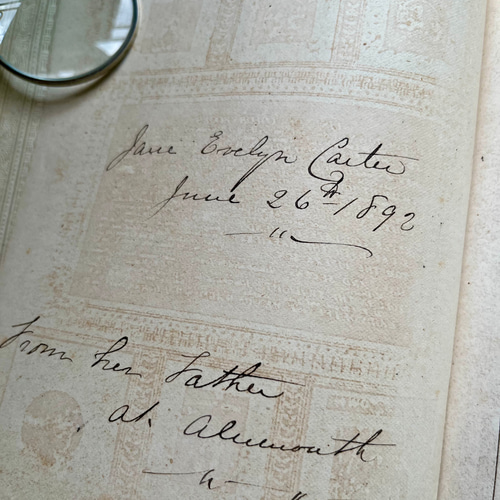 Jane Evelyn Carter
June 26th 1892
"
From her Father
at Alnmouth
"
"